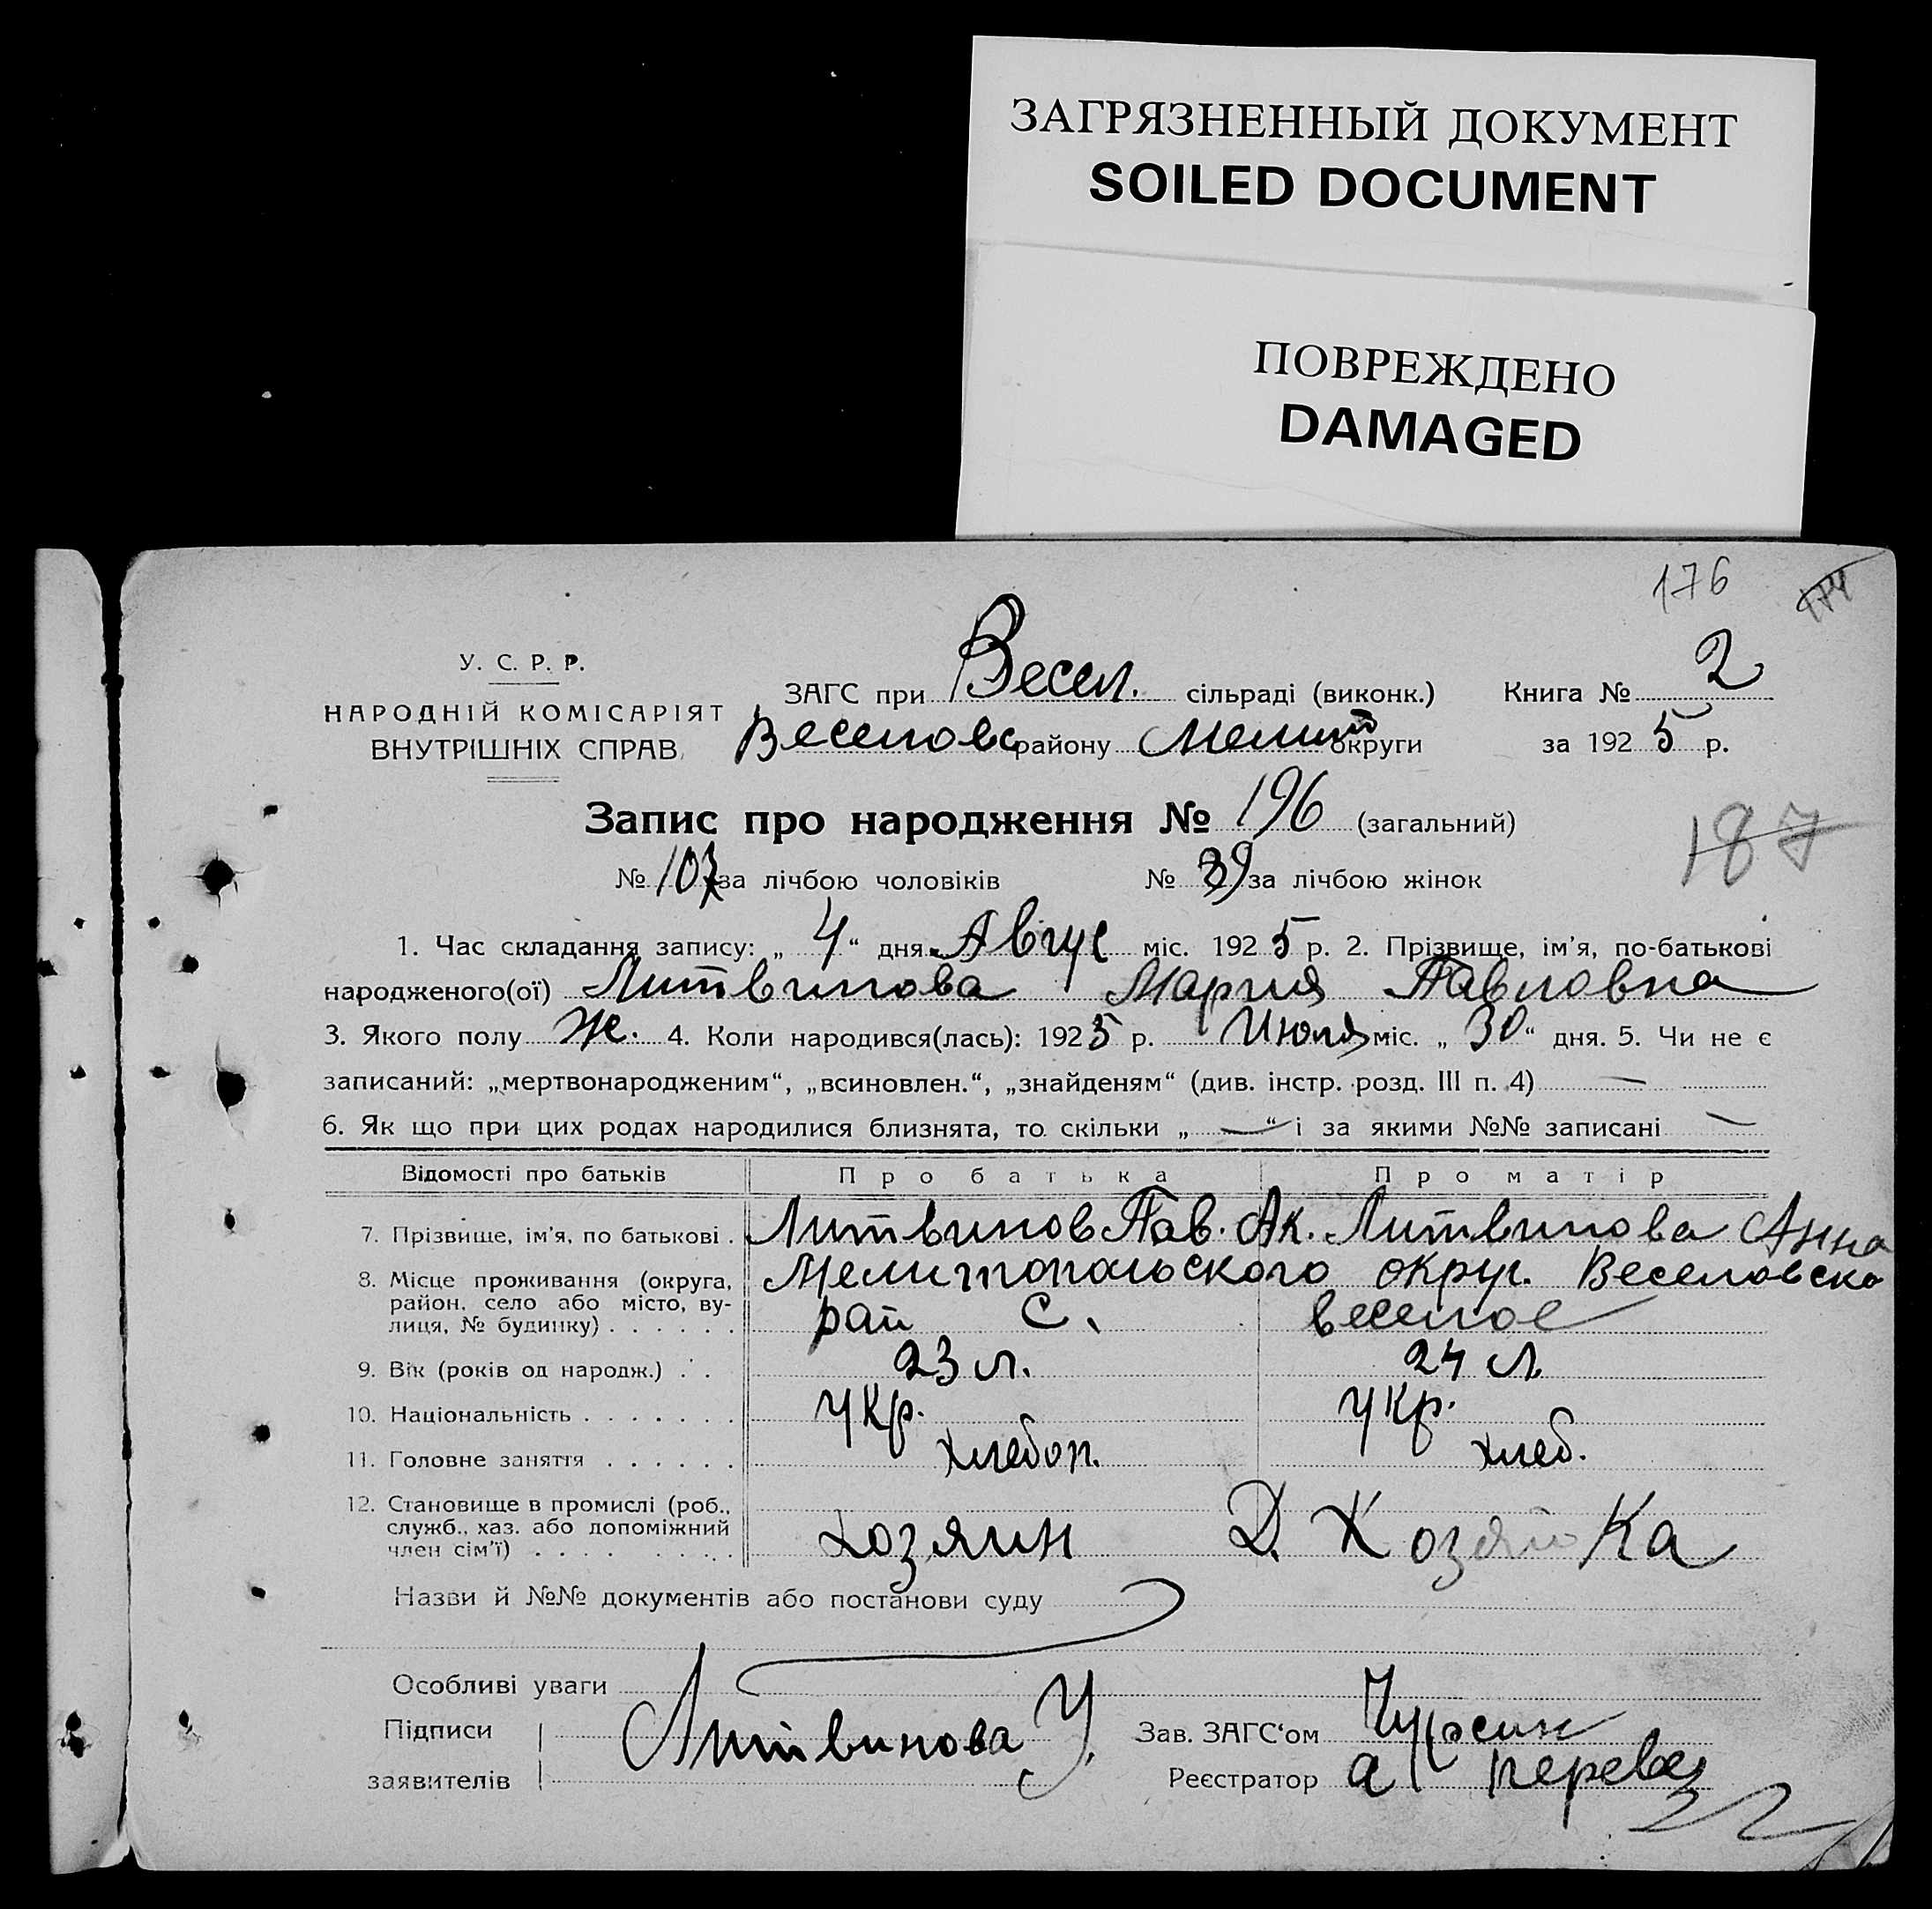 ЗАГРЯЗНЕННЫЙ ДОКУМЕНТ
SOILED DOCUMENT
ПОВРЕЖДЕНО
DAMAGED
176 174
У. С. Р. Р.
НАРОДНІЙ КОМІСАРІЯТ
ВНУТРІШНІХ СПРАВ
ЗАГС при Весел. сільраді (виконк.) Книга № 2
Веселовс району Мелит округи за 1925 р.
Запис про народження № 196 (загальний)
187
№ 107 за лічбою чоловіків № 89 за лічбою жінок
1. Час складання запису: „ 4 “ дня Авгус міс. 1925 р. 2. Прізвище, ім'я, по-батькові
народженого(ої) Литвинова Мария Павловна
3. Якого полу Ж. 4. Коли народився(лась): 1925 р. Июля міс. „ 30 “ дня. 5. Чи не є
записаний: „мертвонародженим“, „всиновлен.“, „знайденям“ (див. інстр. розд. III п. 4) —
6. Як що при цих родах народилися близнята, то скільки „ — “ і за якими №№ записані —
Відомості про батьків Про батька Про матір
7. Прізвище, ім'я, по батькові . Литвинов Пав. Ак. Литвинова Анна
8. Місце проживання (округа, Мелитопольского округ. Веселовско
район, село або місто, ву-
лиця, № будинку) . . . . . . рай С. Веселое
9. Вік (років од народж.) . . 23 л. 24 л.
10. Національність . . . . . . . укр. укр.
11. Головне заняття . . . . . . хлебоп. хлеб.
12. Становище в промислі (роб.,
служб., хаз. або допоміжний
член сім'ї) . . . . . . . . . хозяин Д. Хозяйка
Назви й №№ документів або постанови суду
Особливі уваги
Підписи Литвинова У. Зав. ЗАГС'ом
заявителів Реєстратор